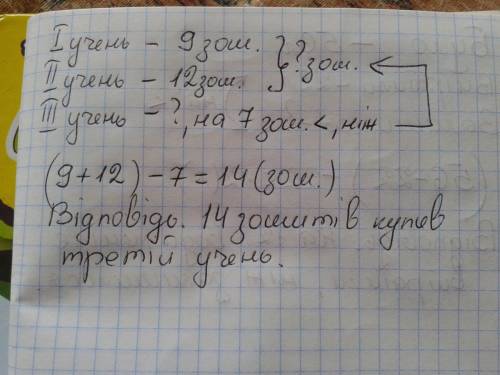 I учень - 9 зош. } ? зош.
II учень - 12 зош.
III учень - ?, на 7 зош. <, ніж
(9+12)-7=14(зош.)
Відповідь. 14 зошитів купив
третій учень.